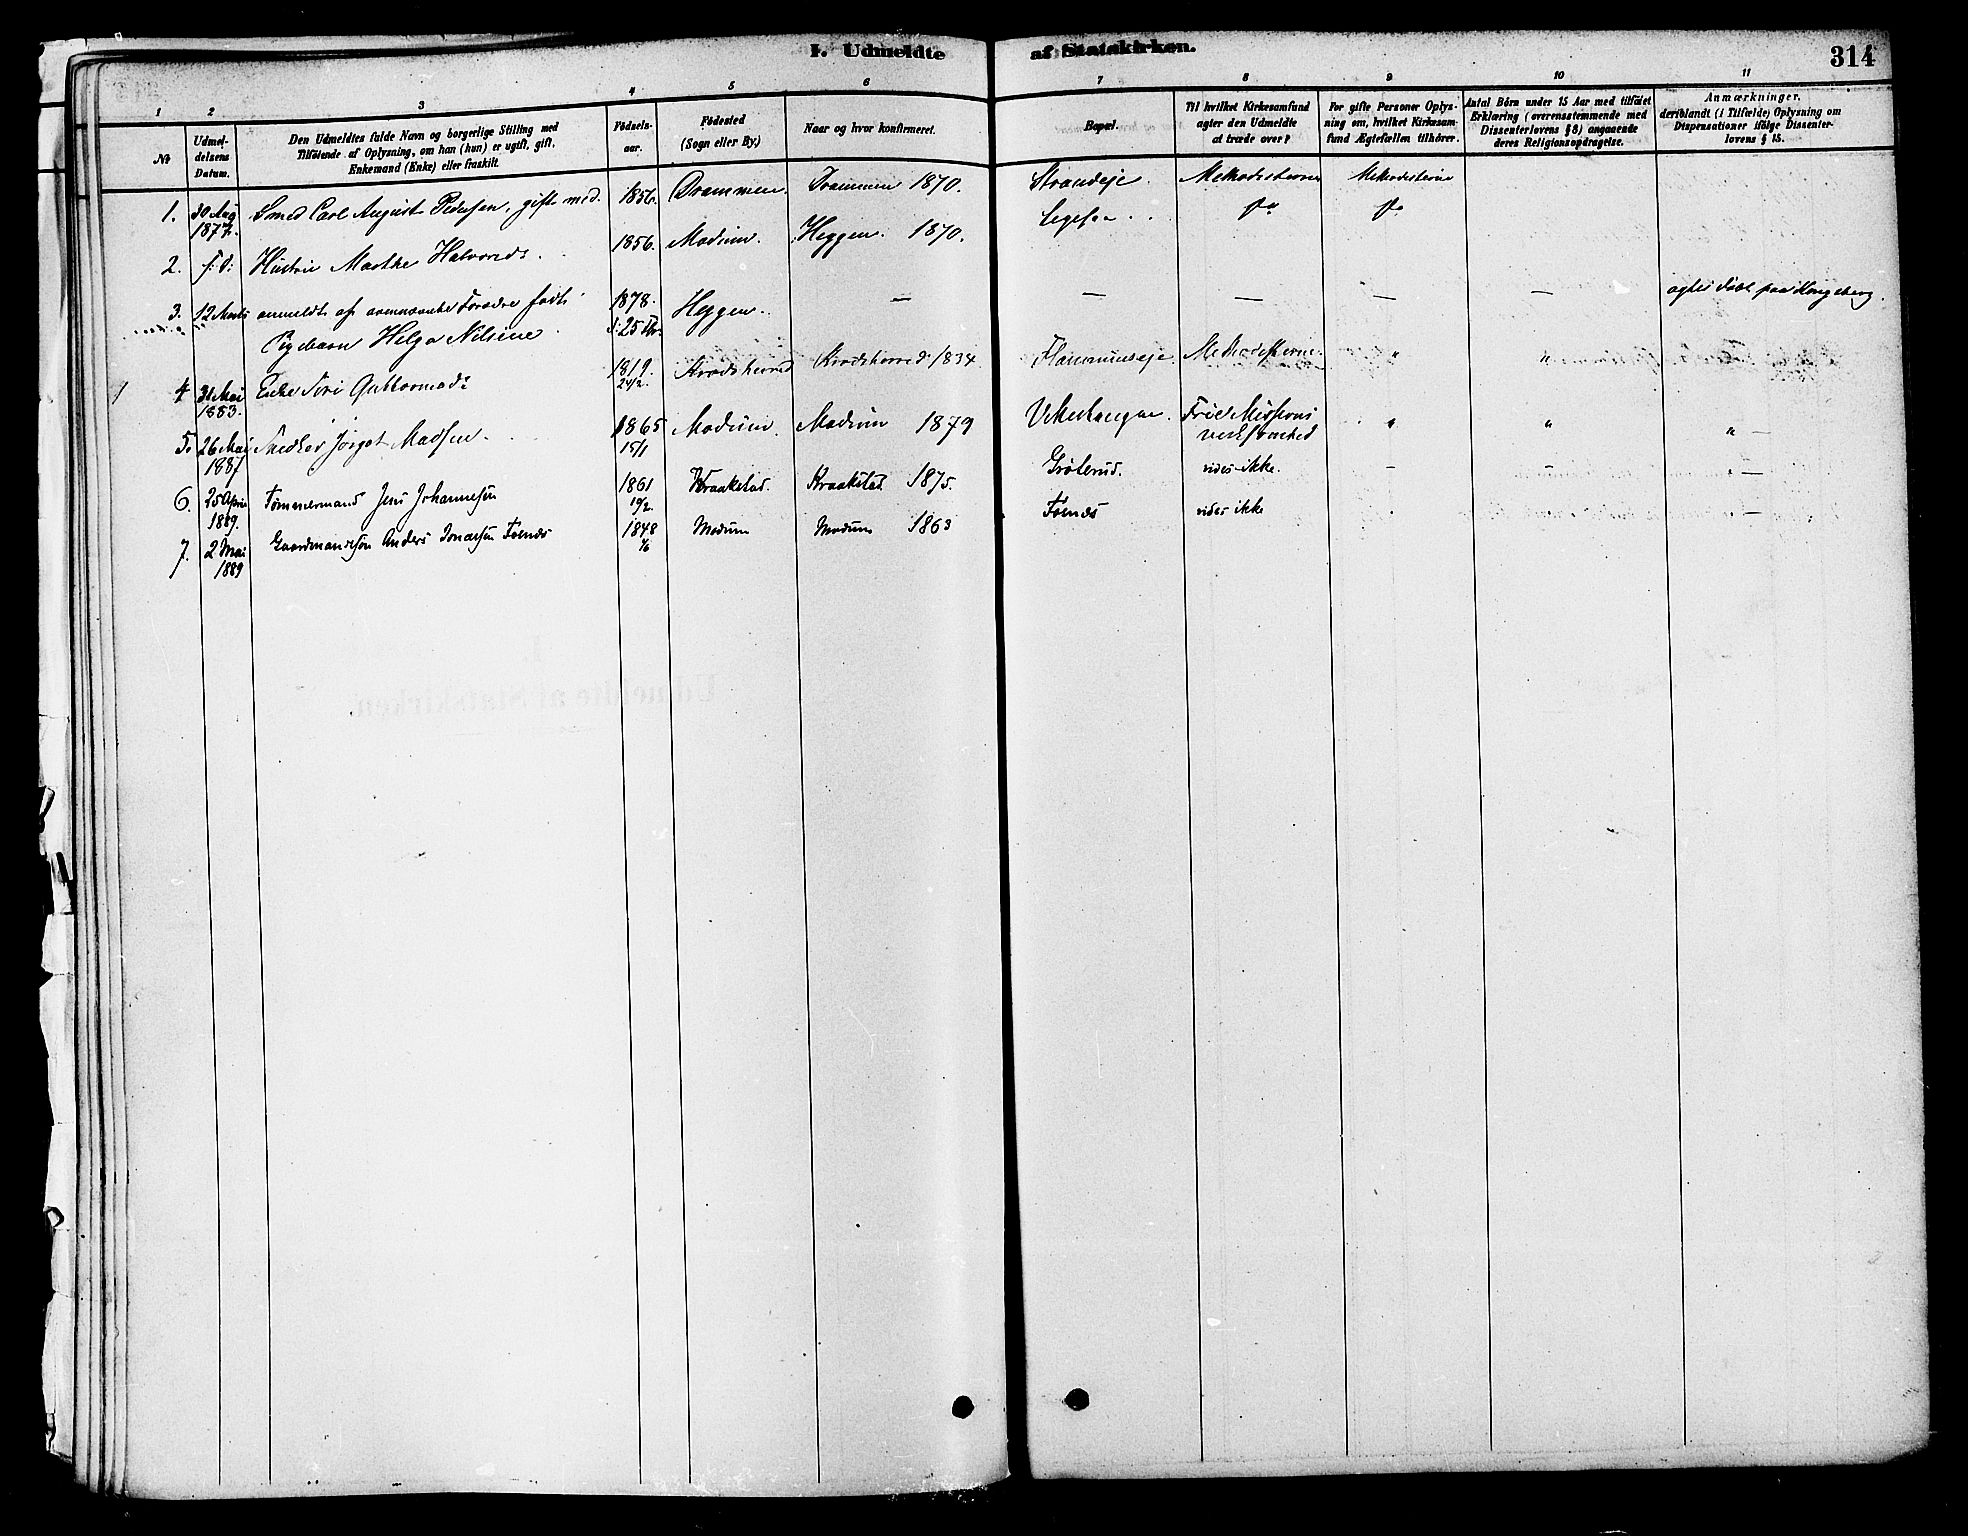 I. Udmeldte af Statskirken.
314
1 2 3 4 5 6 7 8 9 10 11
No
Udmel-
delsens
Datum.
Den Udmeldtes fulde Navn og borgerlige Stilling med
Tilføiende af Oplysning, om han (hun) er ugift, gift,
Enkemand (Enke) eller fraskilt.
Fødsels-
aar.
Fødested
(Sogn eller By.)
Naar og hvor konfirmeret.
Bopæl.
Til hvilket Kirkesamfund
agter den Udmeldte
at træde over?
For gifte Personer Oplys-
ning om, hvilket Kirkesam-
fund Ægtefællen tilhører.
Antal Børn under 15 Aar med tilføiet
Erklæring (overensstemmende med
Dissenterlovens § 8) angaaende
deres Religionsopdragelse.
Anmærkninger.
deriblandt (i Tilfælde) Oplysning om
Dispensationer ifølge Dissenter-
lovens § 15.
1. 30 Aug Smed Carl August Pedersen, gift med. 1856. Drammen. Drammen 1870. Strandeje. Methodisterne Methodisterne
1877.
2. Hustru Marthe Halvorsds. 1856. Modum. Heggen. 1870.
3. 12 Marts anmeldt af ovennævnte Forældre født 1878. Heggen. — — — — — agtes døbt paa Kongsberg.
Pigebarn Helga Nilsine 25
4 31 Mai Enke Siri Guttormsd: 1819. Krødsherred Krødsherred 1834. Flannumseje. Methodisterne. " "
1883. 24/2.
5. 26 Mai Snedker Jørgen Madsen. 1865 Modum. Modum 1879 Frie Missions " " " —
1887 15/1 virksomhed
6. 25 April Tømmermand Jens Johannesen 1861 Kraakstad. Kraakstad 1875. Grøterud. vides ikke. - - " —
1889. 19/2.
7. 2 Mai Gaardmandssøn Anders Jonassen Foenæs 1848 Modum Modum 1863 Foenæs vides ikke " —
1889